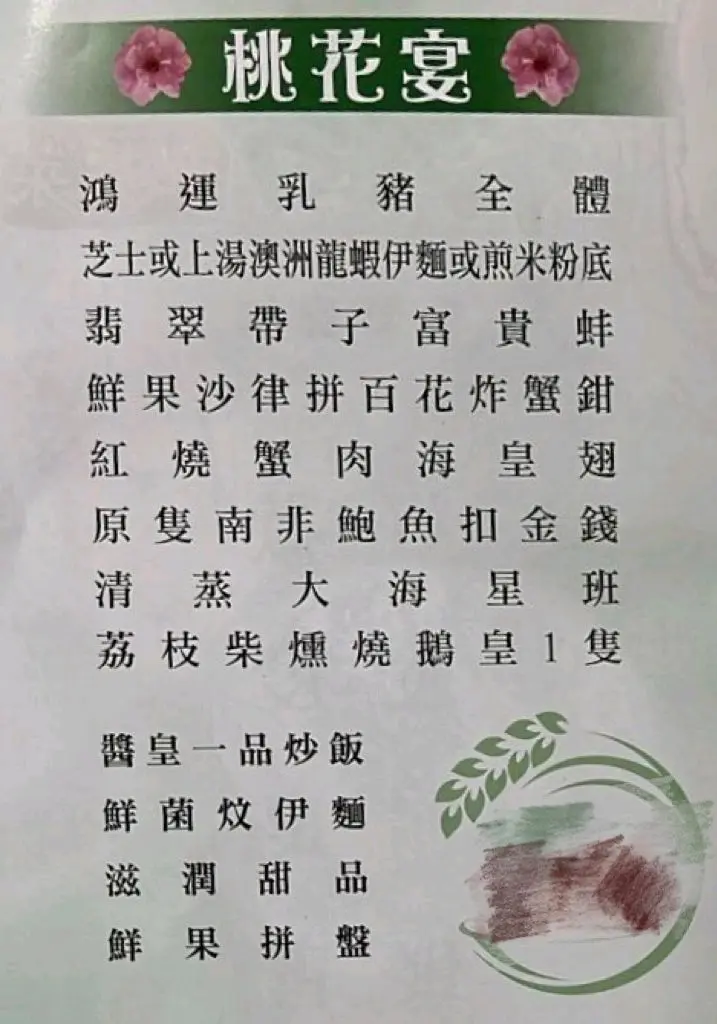 桃花宴
鴻運乳豬全體
芝士或上湯澳洲龍蝦伊麵或煎米粉底
翡翠帶子富貴蚌
鮮果沙律拼百花炸蟹鉗
紅燒蟹肉海皇翅
原隻南非鮑魚扣金錢
清蒸大海星班
荔枝柴燻燒鵝皇1隻
醬皇一品炒飯
鮮菌炆伊麵
滋潤甜品
鮮果拼盤